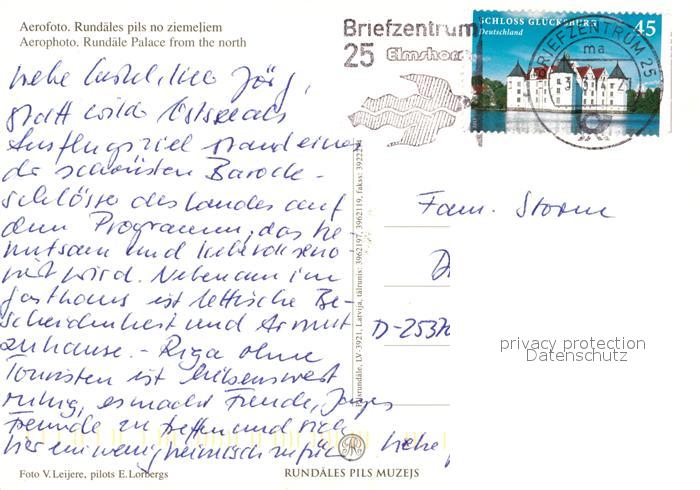 Aerofoto. Rundāles pils no ziemeļiem
Aerophoto. Rundāle Palace from the north
Briefzentrum
25 Elmshorn
SCHLOSS GLÜCKSBURG 45
Deutschland
BRIEFZENTRUM 25
ma
Jörg,
statt wilde Ostsee als
Ausflugsziel stand eines
der schönsten Barock-
schlösser des Landes auf
dem Programm, das be-
hutsam und liebevoll reno-
viert wird. Nebenan im
Gasthaus ist lettische Be-
scheidenheit und Armut
zuhause. - Riga ohne
Touristen ist
es macht Freude, junge
Freunde zu treffen und sich
hier ein wenig heimisch zu fühlen
Liebe
Fam. Storm
D-2537
Pilsrundāle, LV-3921, Latvija, tālrunis: 3962197, 3962119, fakss: 392227
privacy protection
Datenschutz
Foto V.Leijere, pilots E.Lorbergs
RUNDĀLES PILS MUZEJS